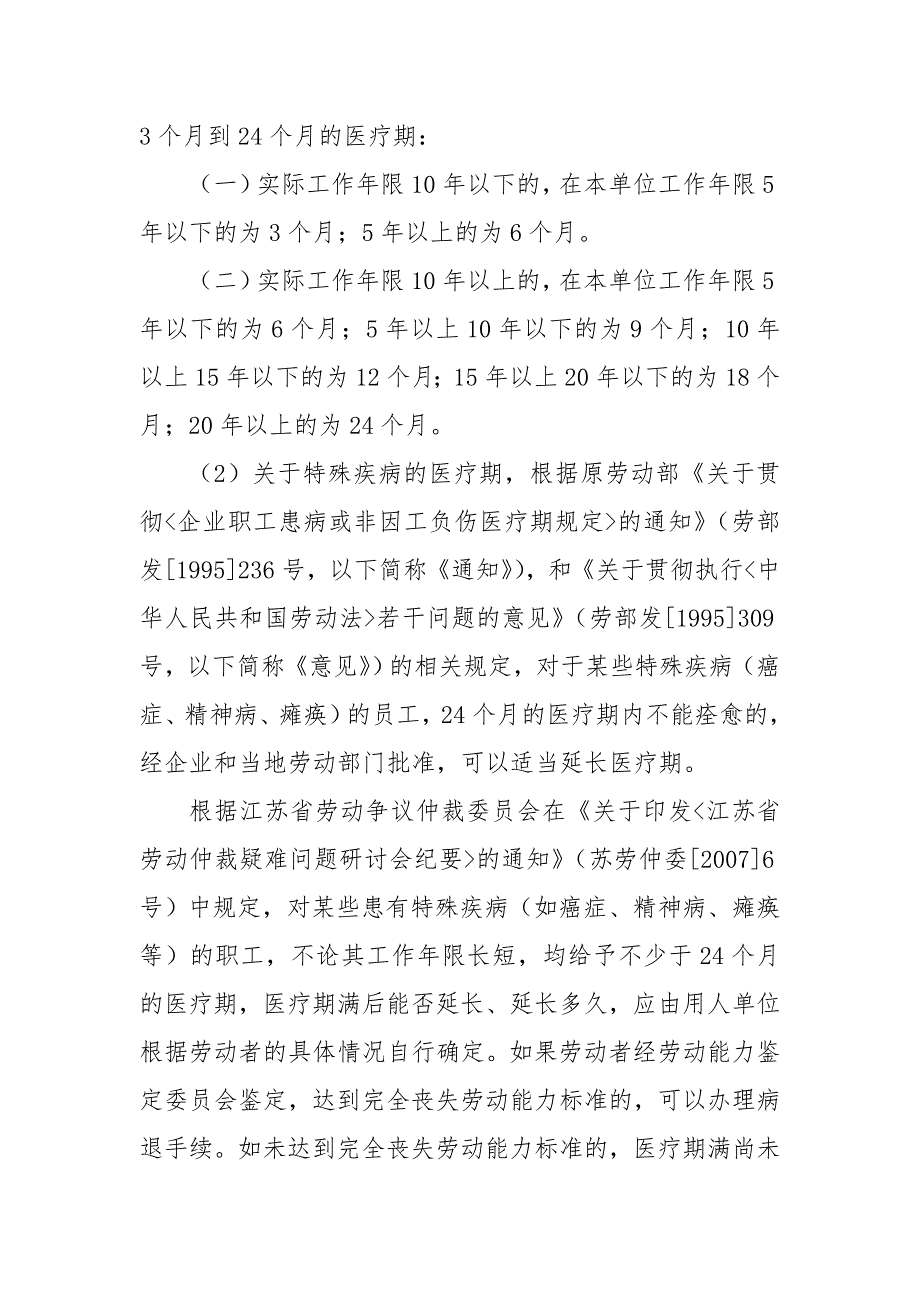 3个月到24个月的医疗期：
（一）实际工作年限10年以下的，在本单位工作年限5
年以下的为3个月；5年以上的为6个月。
（二）实际工作年限10年以上的，在本单位工作年限5
年以下的为6个月；5年以上10年以下的为9个月；10年
以上15年以下的为12个月；15年以上20年以下的为18个
月；20年以上的为24个月。
（2）关于特殊疾病的医疗期，根据原劳动部《关于贯
彻<企业职工患病或非因工负伤医疗期规定>的通知》（劳部
发[1995]236号，以下简称《通知》），和《关于贯彻执行<中
华人民共和国劳动法>若干问题的意见》（劳部发[1995]309
号，以下简称《意见》）的相关规定，对于某些特殊疾病（癌
症、精神病、瘫痪）的员工，24个月的医疗期内不能痊愈的，
经企业和当地劳动部门批准，可以适当延长医疗期。
根据江苏省劳动争议仲裁委员会在《关于印发<江苏省
劳动仲裁疑难问题研讨会纪要>的通知》（苏劳仲委[2007]6
号）中规定，对某些患有特殊疾病（如癌症、精神病、瘫痪
等）的职工，不论其工作年限长短，均给予不少于24个月
的医疗期，医疗期满后能否延长、延长多久，应由用人单位
根据劳动者的具体情况自行确定。如果劳动者经劳动能力鉴
定委员会鉴定，达到完全丧失劳动能力标准的，可以办理病
退手续。如未达到完全丧失劳动能力标准的，医疗期满尚未